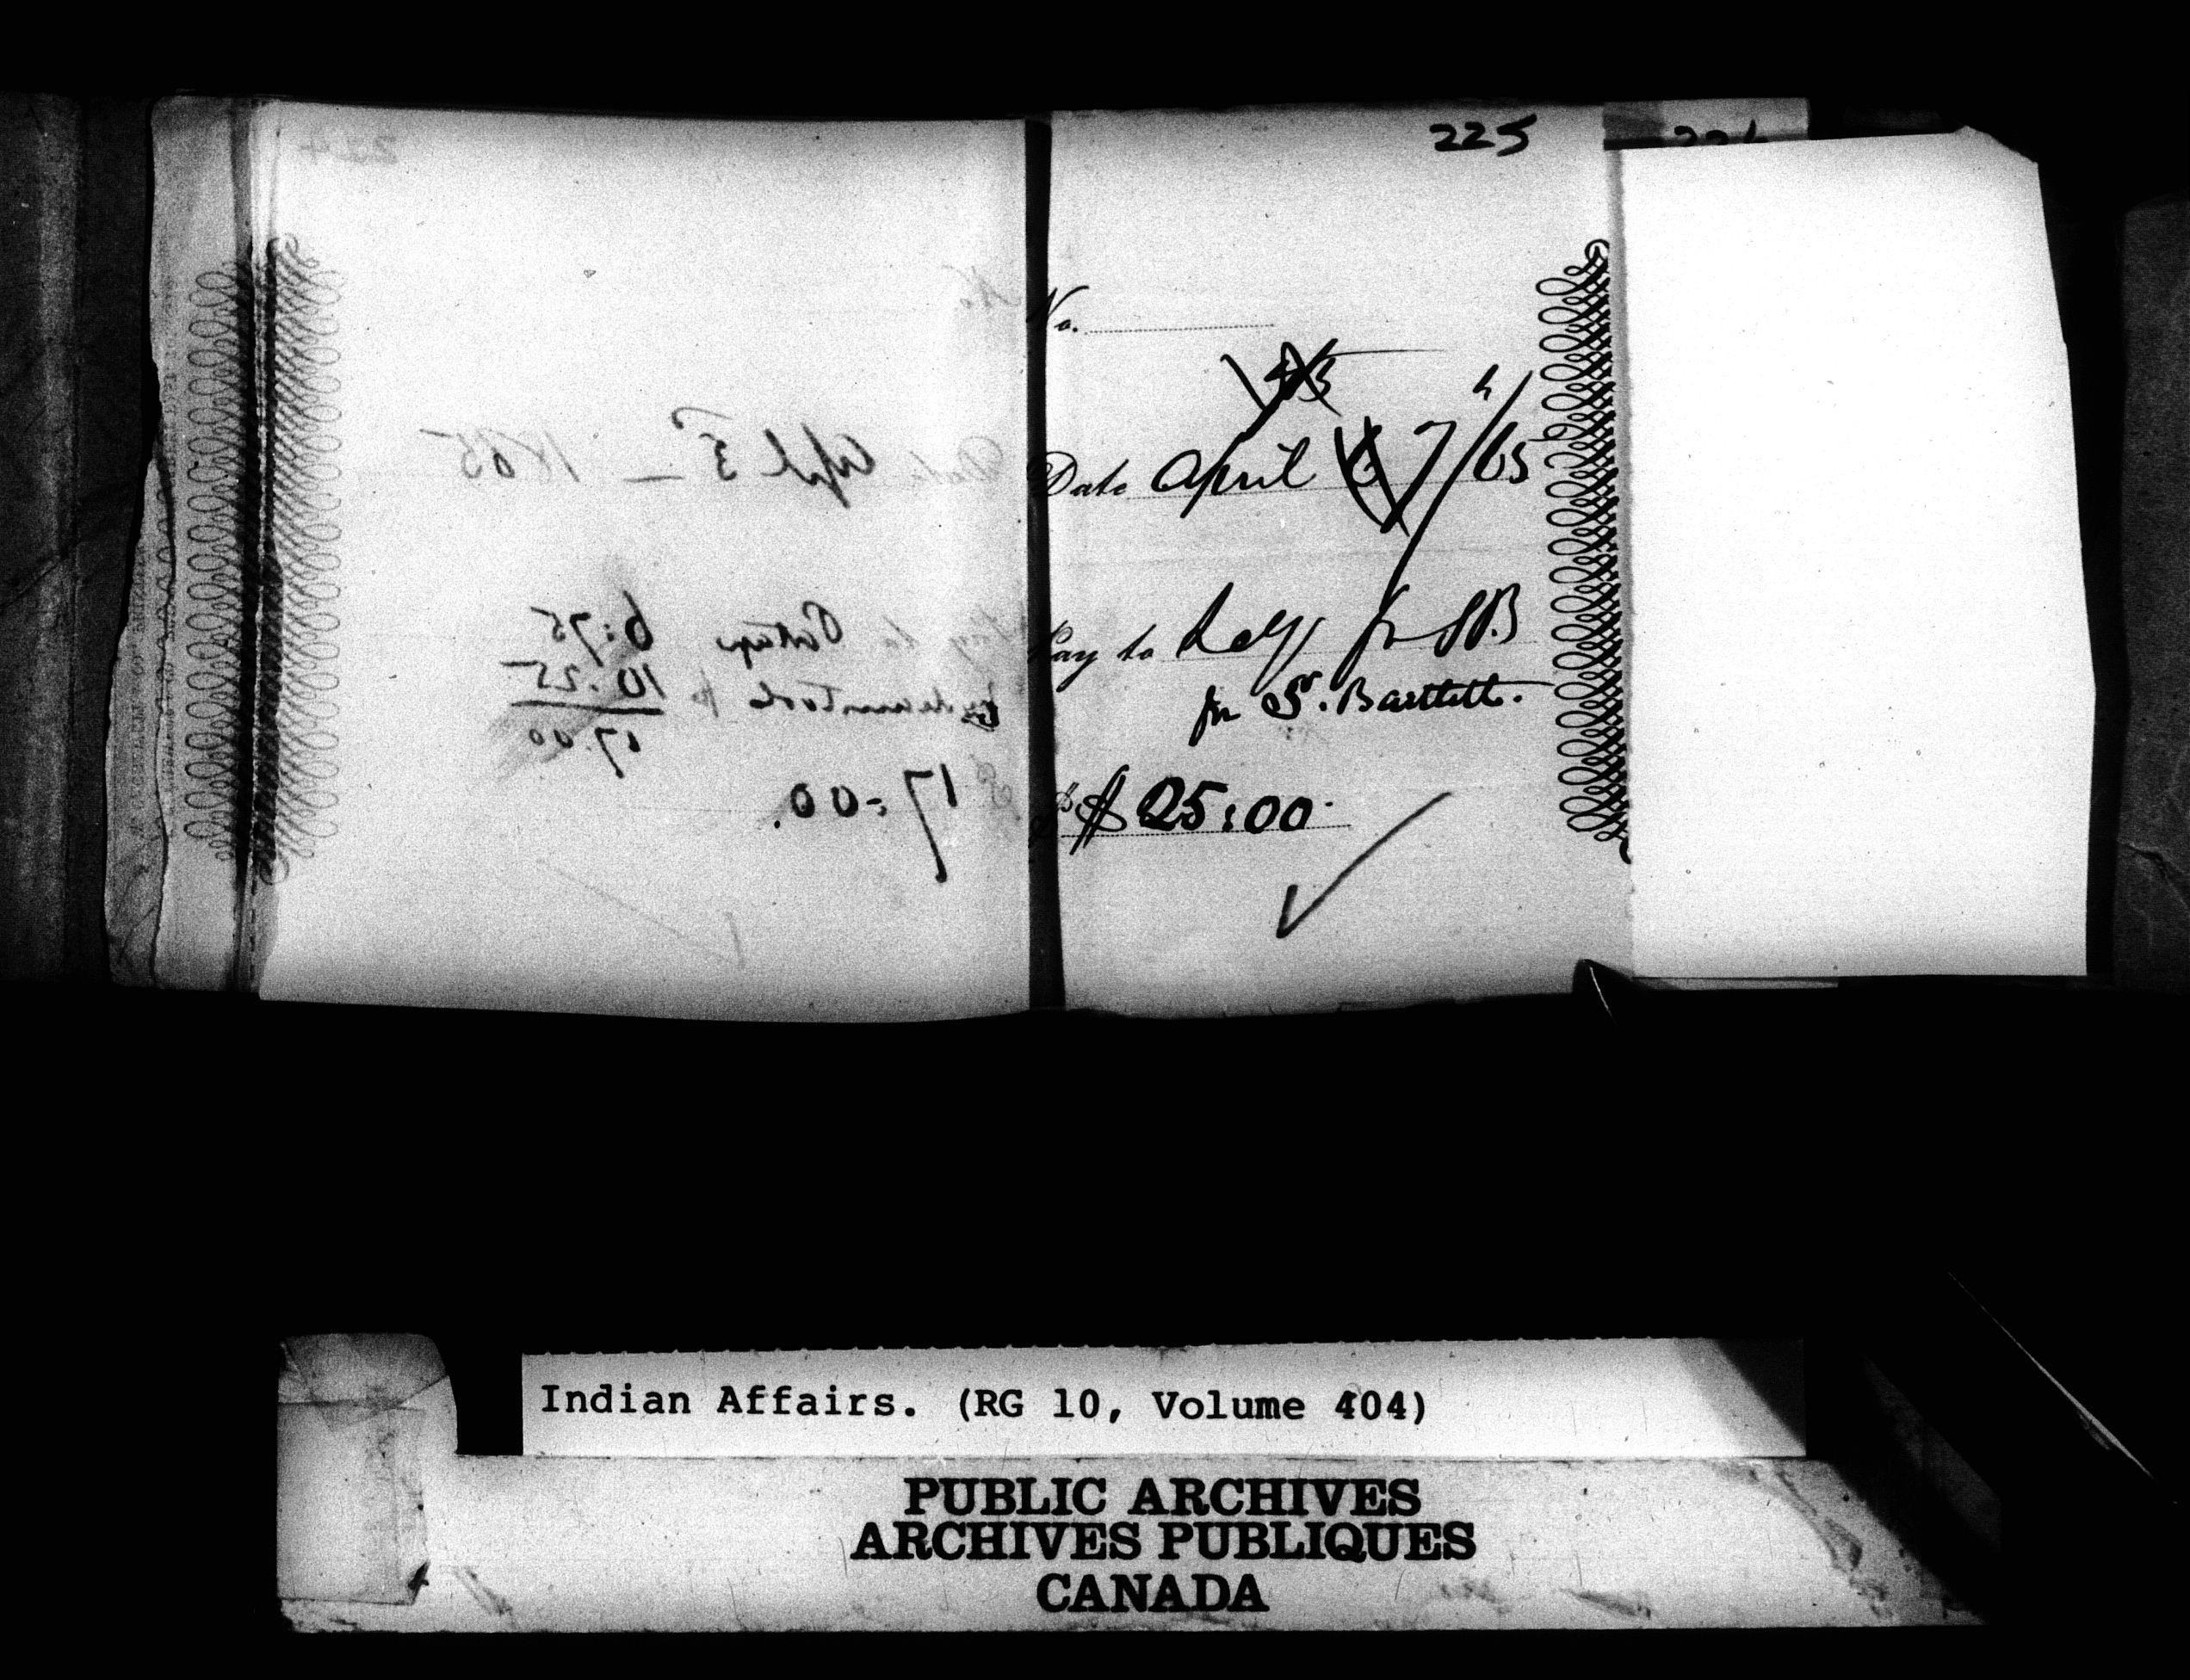 225
No.
Date April 7/65
Pay to for SB
for S. Bartlett.
$ 25:00
224
Date Apl 5 - 1865
Pay to Postage 6:75
10.25
17.00
17=00.
Indian Affairs. (RG 10, Volume 404)
PUBLIC ARCHIVES
ARCHIVES PUBLIQUES
CANADA